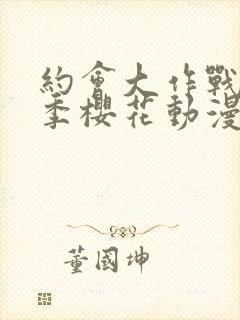 約會大作戰
季櫻花動漫
董國坤